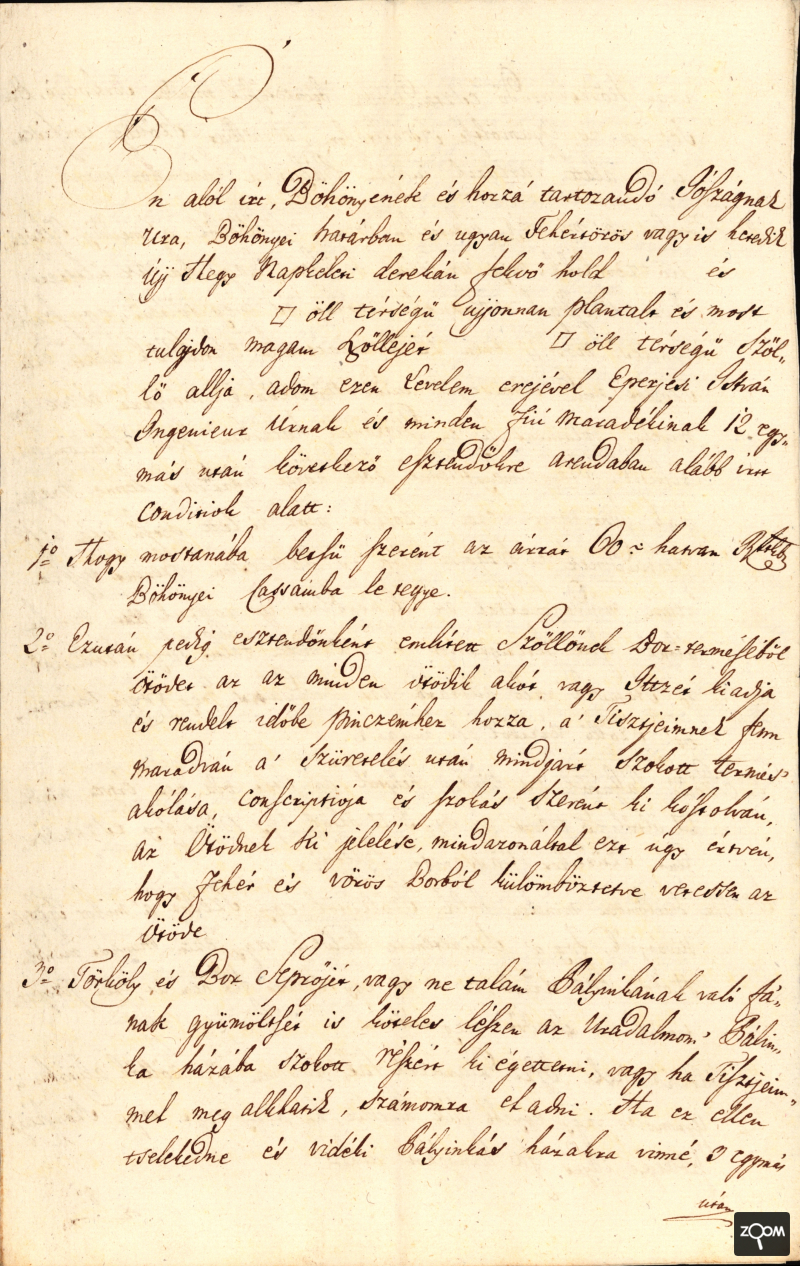 Én alól írt, Böhönyének és hozzá tartozandó Jószágnak
Ura, Böhönyei határban és ugyan Fehérvörös vagyis heredik
Új Hegy Napkeleti derekán fekvő hold és
□ öll térségű Eujjonnan plantalt és most
tulajdon magam Szöllejét □ öll térségű Szöl-
lő allja, adom ezen Levelem erejével Eperjesi István
Ingenieur Úrnak és minden fiú maradékinak 12 egy-
más után következő esztendőkre arendaban alább irtt
conditiok alatt:
1o Hogy mostanába betsü szerént az árrát 60 hatvan
Böhönyei Cassámba le tegye.
2o Ezután pedig esztendőnként emlitett Szöllőnek Bor-terméséből
ötödet az az minden ötödik akót vagy Ittzét kiadja
és rendelt időbe pinczémhez hozza, a' Tisztjeimnek fenn
maradván a' szüretelés után mindjárt szokott termés
akólása, conscriptioja és szokás szerént ki kóstolván,
az Ötödnek ki jelelése, mindazonáltal ezt úgy értvén,
hogy fehér és vörös Borból külömböztetve vetessen az
ötöde
3o Törköly és Bor Seprőjét, vagy ne talám Pályinkának való fá-
nak gyümöltsét is köteles lészen az Uradalmom' Pálin-
ka házába szokott részért ki égettetni, vagy ha Tisztjeim-
mel meg alkhatik, számomra el adni. Ha ez ellen
tselekedne és vidéki Pályinkás házakra vinné, 3 egymás
után
ZOOM